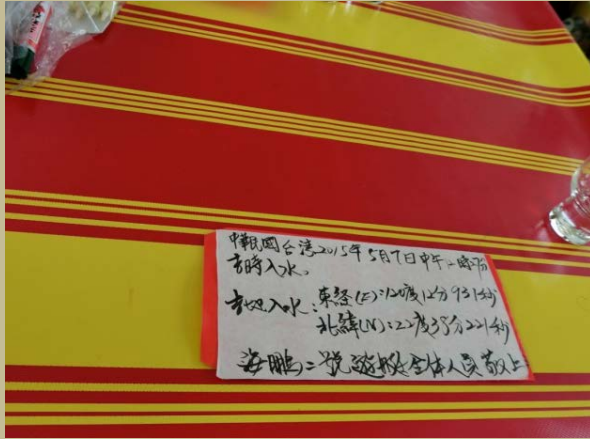 中華民國台湾2015年5月7日中午12時
吉時入水。
吉地入水:東経(E):120度12分931秒
北緯(N):22度35分221秒
海鵬二號 全体人員敬上